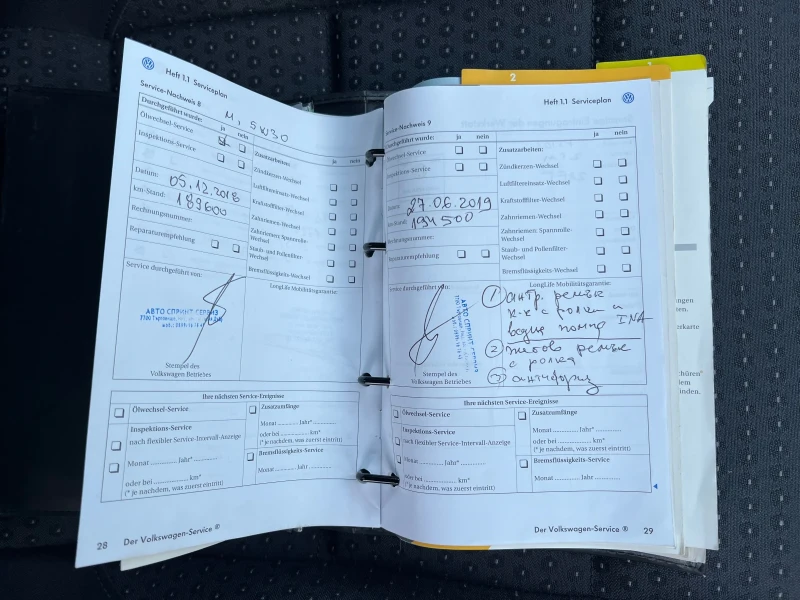 Heft 1.1 Serviceplan
Service-Nachweis 8
M, 5W30
Durchgeführt wurde:
ja nein
Ölwechsel-Service
Inspektions-Service
Datum:
05.12.2018
km-Stand:
189600
Rechnungsnummer:
Reparaturempfehlung
Zusatzarbeiten:
ja nein
Zündkerzen-Wechsel
Luftfiltereinsatz-Wechsel
Kraftstofffilter-Wechsel
Zahnriemen-Wechsel
Zahnriemen: Spannrolle-
Wechsel
Staub- und Pollenfilter-
Wechsel
Bremsflüssigkeits-Wechsel
Service durchgeführt von:
LongLife Mobilitätsgarantie:
АВТО СПРИНТ СЕРВИЗ
Stempel des
Volkswagen Betriebes
Ihre nächsten Service-Ereignisse
Ölwechsel-Service
Inspektions-Service
nach flexibler Service-Intervall-Anzeige
Monat Jahr*
oder bei km*
(* je nachdem, was zuerst eintritt)
Zusatzumfänge
Monat Jahr*
oder bei km*
(* je nachdem, was zuerst eintritt)
Bremsflüssigkeits-Service
Monat Jahr
28 Der Volkswagen-Service ®
2
Heft 1.1 Serviceplan
Service-Nachweis 9
Durchgeführt wurde:
ja nein
Ölwechsel-Service
Inspektions-Service
Datum:
27.06.2019
km-Stand:
194500
Rechnungsnummer:
Reparaturempfehlung
ja nein
Zusatzarbeiten:
Zündkerzen-Wechsel
Luftfiltereinsatz-Wechsel
Kraftstofffilter-Wechsel
Zahnriemen-Wechsel
Zahnriemen: Spannrolle-
Wechsel
Staub- und Pollenfilter-
Wechsel
Bremsflüssigkeits-Wechsel
Service durchgeführt von:
LongLife Mobilitätsgarantie:
АВТО СПРИНТ СЕРВИЗ
Stempel des
Volkswagen Betriebes
1 ангр. ремък
к-кт с ролки и
водна помпа INA
2 пистов ремък
с ролка
3 антифриз
Ihre nächsten Service-Ereignisse
Ölwechsel-Service
Inspektions-Service
nach flexibler Service-Intervall-Anzeige
Monat Jahr*
oder bei km*
(* je nachdem, was zuerst eintritt)
Zusatzumfänge
Monat Jahr*
oder bei km*
(* je nachdem, was zuerst eintritt)
Bremsflüssigkeits-Service
Monat Jahr
Der Volkswagen-Service ® 29